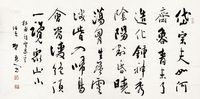 岱宗夫如何
齊魯青未了
造化鍾神秀
陰陽割昏曉
蕩胸生層雲
決眥入歸鳥
會當凌絕頂
一覽眾山小